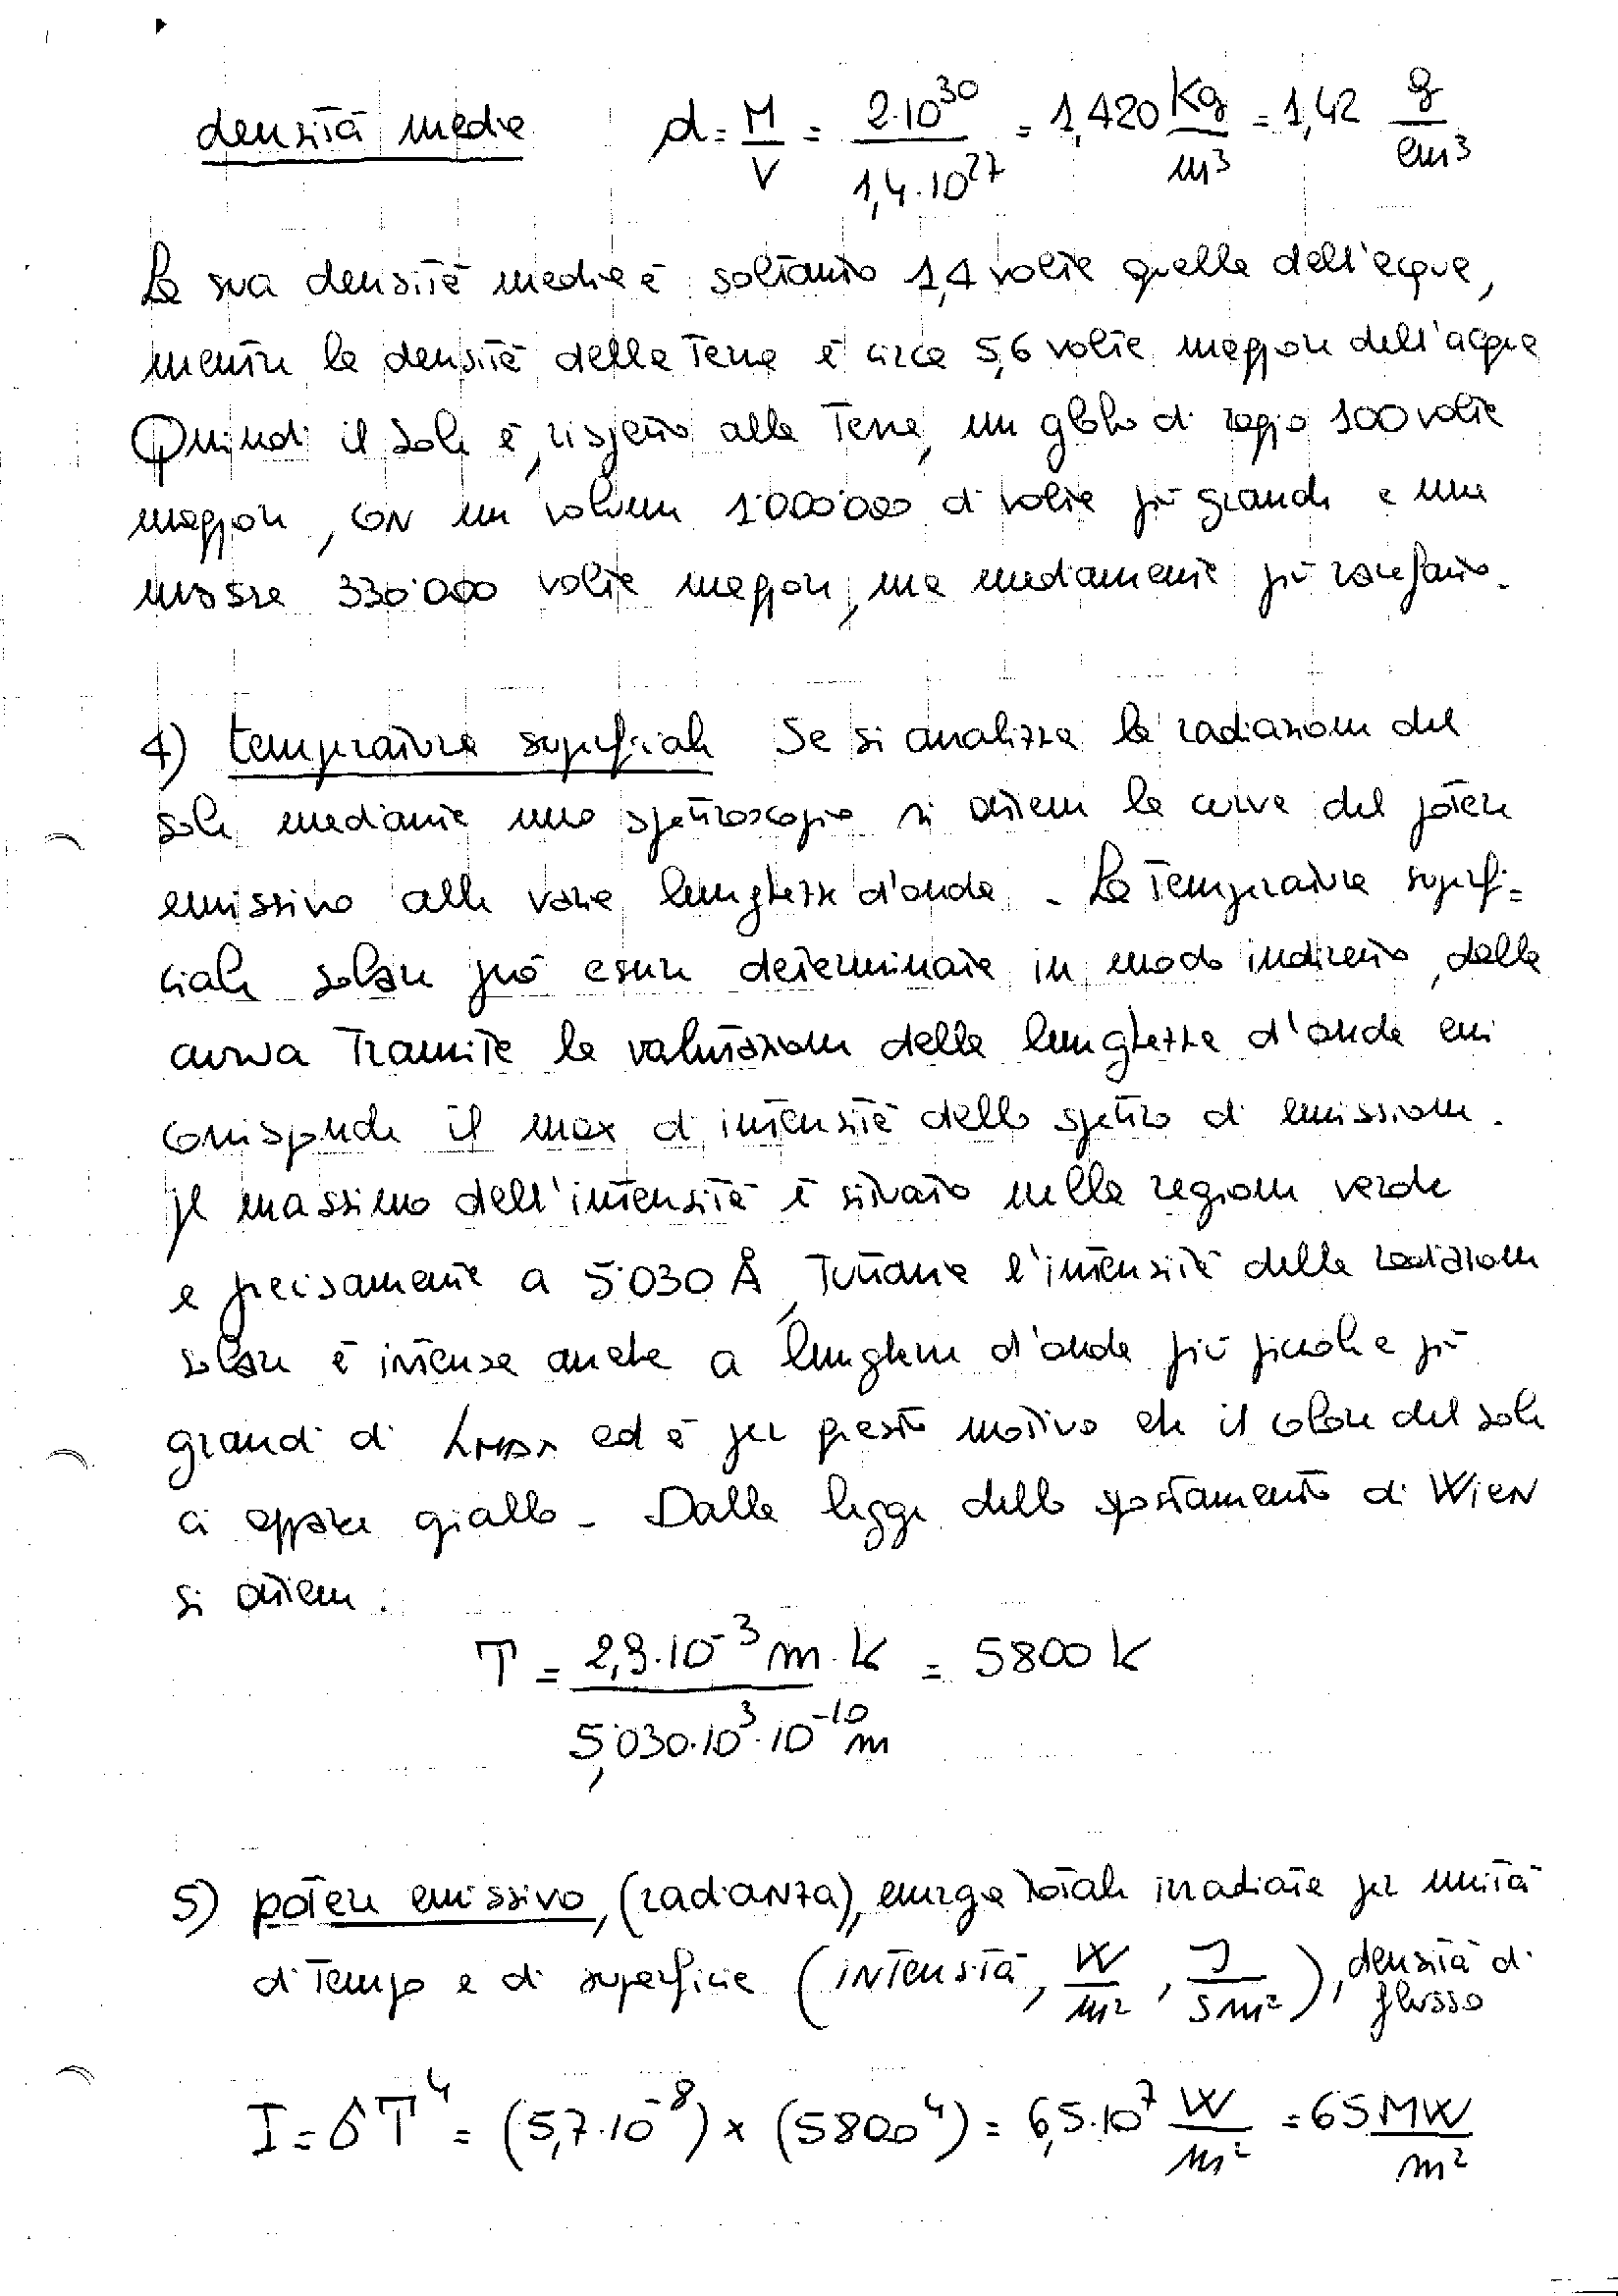 densità media d = M/V = 2·10^30 / 1,4·10^27 = 1,420 Kg/m³ = 1,42 g/cm³
La sua densità media è soltanto 1,4 volte quella dell'acqua,
mentre la densità della Terra è circa 5,6 volte maggiore dell'acqua
Quindi il sole è, rispetto alla Terra, un globo di raggio 100 volte
maggiore, con un volume 1'000'000 di volte più grande e una
massa 330'000 volte maggiore, ma mediamente più rarefatto.
4) temperatura superficiale Se si analizza la radiazione del
sole mediante uno spettroscopio si ottiene la curva del potere
emissivo alle varie lunghezze d'onda - La Temperatura superfi=
ciale solare può essere determinata in modo indiretto, dalla
curva Tramite la valutazione della lunghezza d'onda cui
corrisponde il max di intensità dello spettro di emissione.
Il massimo dell'intensità è situato nella regione verde
e precisamente a 5'030 Å, Tuttavia l'intensità della radiazione
solare è intensa anche a lunghezze d'onda più piccole e più
grandi di λMAX ed è per questo motivo che il colore del sole
ci appare giallo - Dalla legge dello spostamento di Wien
si ottiene:
T = 2,9·10^-3 m·K / 5,030·10^3·10^-10 m = 5800 K
5) potere emissivo, (radianza), energia totale irradiata per unità
di Tempo e di superficie (intensità, W/m², J/s m²), densità di flusso
I = σT^4 = (5,7·10^-8) x (5800^4) = 6,5·10^7 W/m² = 65 MW/m²